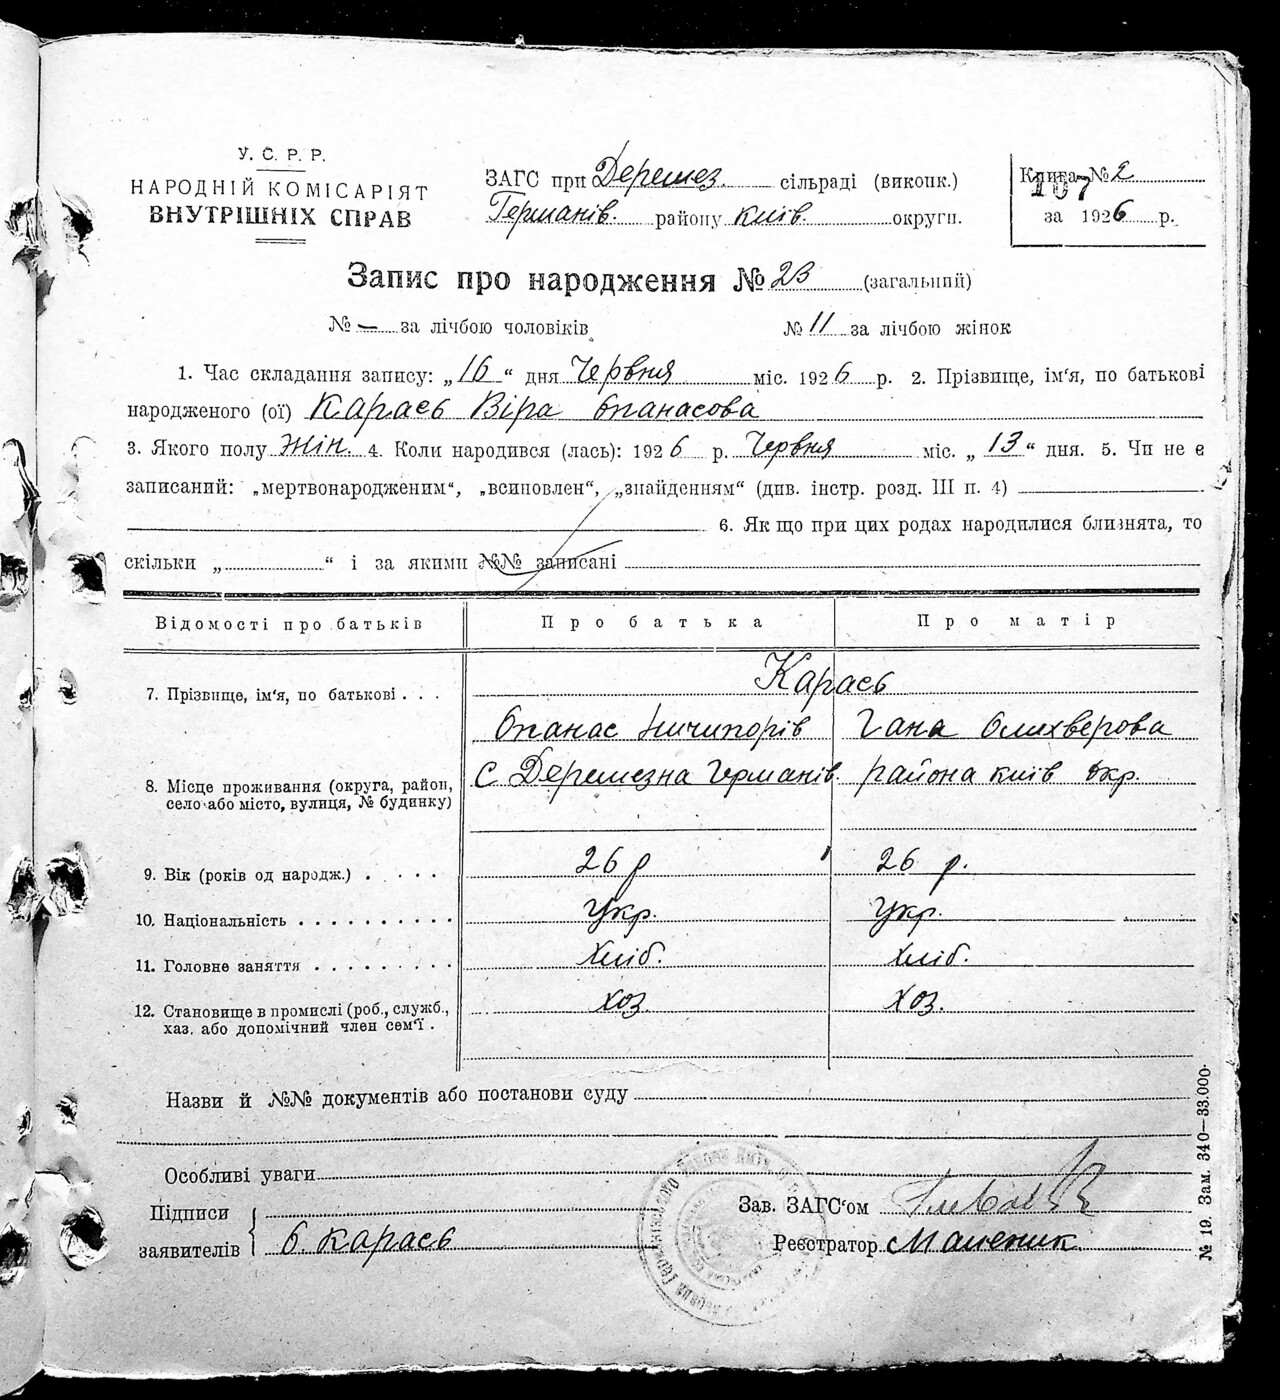 У. С. Р. Р.
НАРОДНІЙ КОМІСАРІЯТ
ВНУТРІШНІХ СПРАВ
ЗАГС при Деремез. сільраді (виконк.)
Германів. району Київ. округи.
Книга № 2
107
за 1926 р.
Запис про народження № 23 (загальний)
№ — за лічбою чоловіків № 11 за лічбою жінок
1. Час складання запису: „16“ дня Червня міс. 1926 р. 2. Прізвище, ім'я, по батькові
народженого (ої) Карась Віра Опанасова
3. Якого полу жін. 4. Коли народився (лась): 1926 р. Червня міс. „13“ дня. 5. Чи не є
записаний: „мертвонародженим“, „всиновлен“, „знайденням“ (див. інстр. розд. III п. 4)
6. Як що при цих родах народилися близнята, то
скільки „ “ і за якими №№ записані
Відомості про батьків Про батька Про матір
7. Прізвище, ім'я, по батькові . . . Карась
Опанас Ничипорів Гана Олихверова
8. Місце проживання (округа, район, с Деремезна Германів. района Київ окр.
село або місто, вулиця, № будинку)
9. Вік (років од народж.) . . . . . 26 р 26 р.
10. Національність . . . . . . . . . . Укр. Укр.
11. Головне заняття . . . . . . . . . Хліб. Хліб.
12. Становище в промислі (роб., служб., хоз. хоз.
хаз. або допомічний член сем'ї .
Назви й №№ документів або постанови суду
Особливі уваги
Підписи
заявителів О. Карась
Зав. ЗАГС'ом
Реєстратор
№ 19. Зам. 340—33.000.